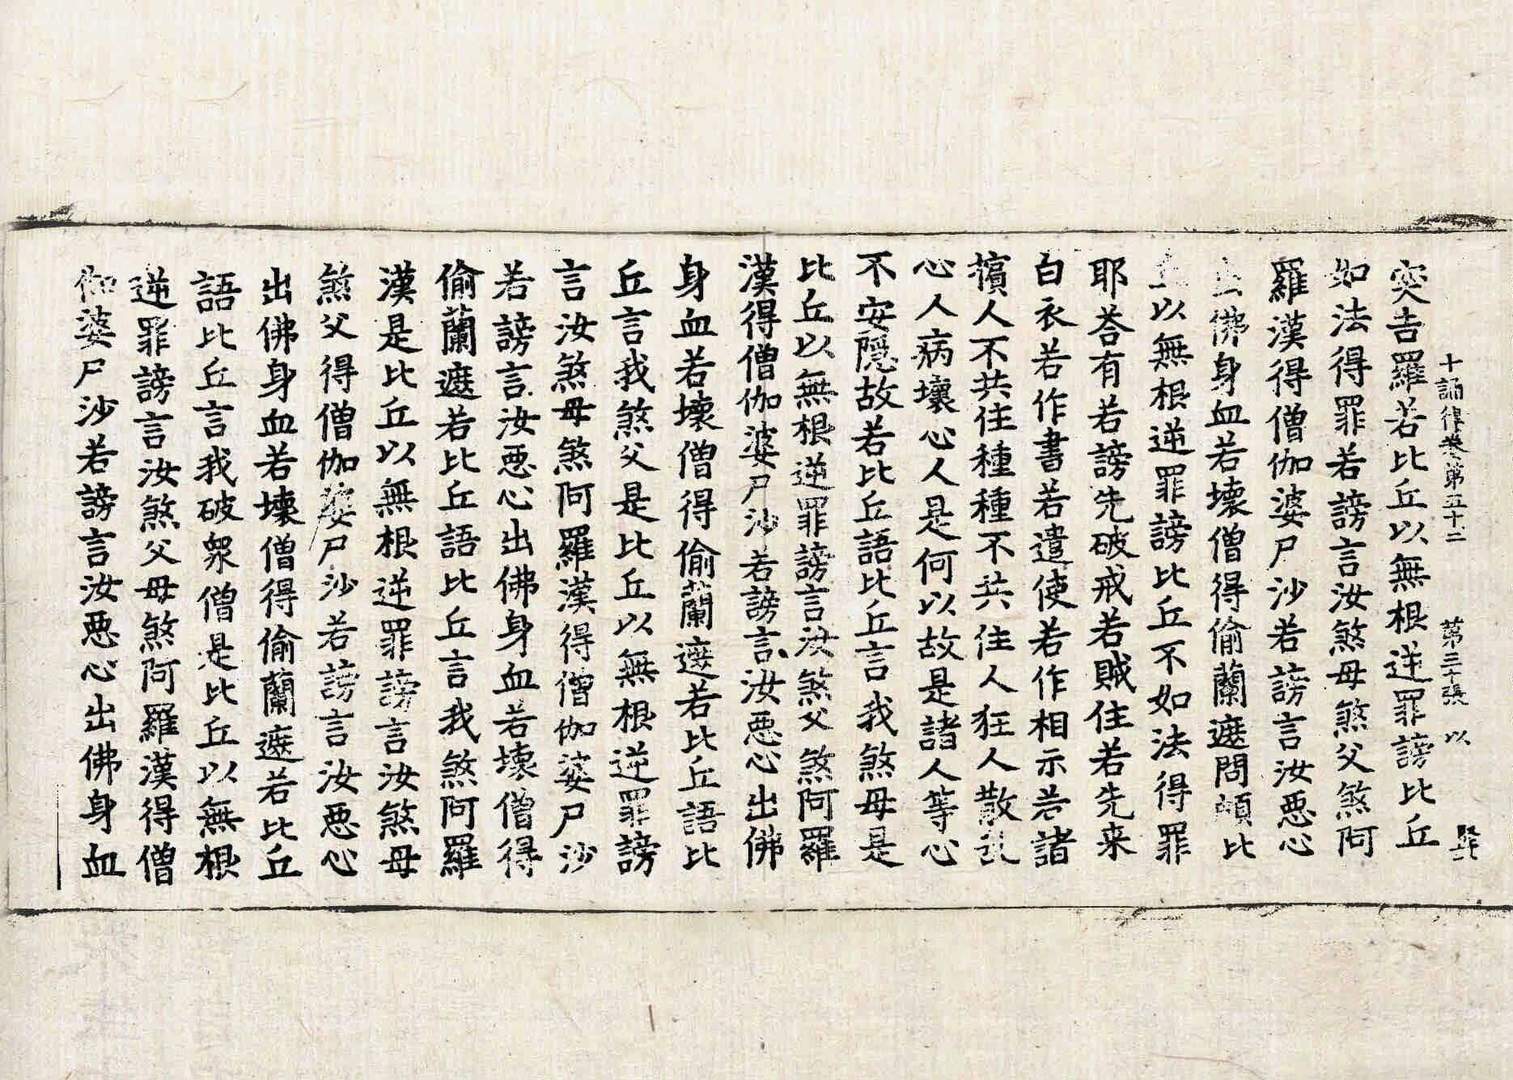 十誦律卷第五十二　第三十張　以
突吉羅若比丘以無根逆罪謗比丘
如法得罪若謗言汝煞母煞父煞阿
羅漢得僧伽婆尸沙若謗言汝惡心
出佛身血若壞僧得偷蘭遮問頗比
丘以無根逆罪謗比丘不如法得罪
耶荅有若謗先破戒若賊住若先来
白衣若作書若遣使若作相示若諸
擯人不共住種種不共住人狂人散乱
心人病壞心人是何以故是諸人等心
不安隱故若比丘語比丘言我煞母是
比丘以無根逆罪謗言汝煞父煞阿羅
漢得僧伽婆尸沙若謗言汝惡心出佛
身血若壞僧得偷蘭遮若比丘語比
丘言我煞父是比丘以無根逆罪謗
言汝煞母煞阿羅漢得僧伽婆尸沙
若謗言汝惡心出佛身血若壞僧得
偷蘭遮若比丘語比丘言我煞阿羅
漢是比丘以無根逆罪謗言汝煞母
煞父得僧伽婆尸沙若謗言汝惡心
出佛身血若壞僧得偷蘭遮若比丘
語比丘言我破衆僧是比丘以無根
逆罪謗言汝煞父母煞阿羅漢得僧
伽婆尸沙若謗言汝惡心出佛身血